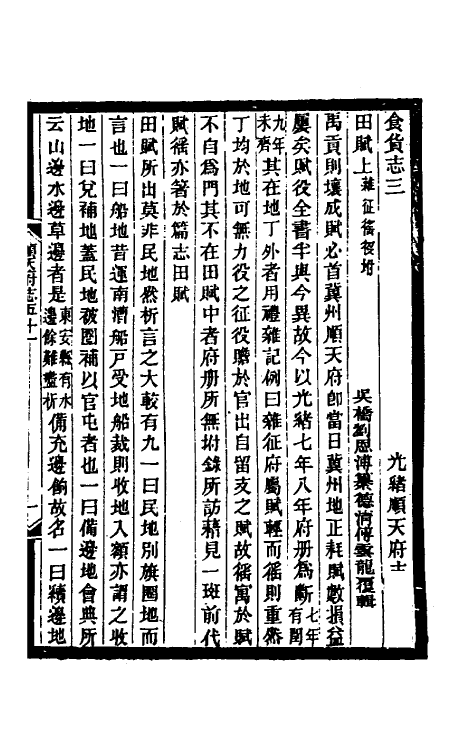 食貨志三　光緒順天府志
田賦上雜征徭役坿　吳橋劉恩溥纂德淸傅雲龍覆輯
禹貢則壤成賦必首冀州順天府卽當日冀州地正耗賦數損益
屢矣賦役全書半與今異故今以光緒七年八年府册爲斷七年有閏
九年未齊其在地丁外者用禮雜記例曰雜征府屬賦輕而徭則重無
丁均於地可無力役之征役贍於官出自留支之賦故徭寓於賦
不自爲門其不在田賦中者府册所無坿錄所訪藉見一斑前代
賦徭亦著於篇志田賦
田賦所出莫非民地然析言之大較有九一曰民地別旗圈地而
言也一曰船地昔運南漕船戶受地船裁則收地入額亦謂之收
地一曰兌補地蓋民地被圈補以官屯者也一曰備邊地會典所
云山邊水邊草邊者是東安縣有水邊餘難盡析備充邊餉故名一曰續邊地
順天府志五十一　一